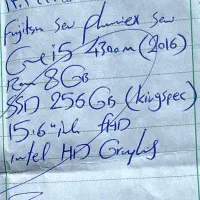 Fujitsu
Core i5 4300m (2016)
Ram 8GB
SSD 256GB (kingspec)
15.6" inch FHD
intel HD Graphics